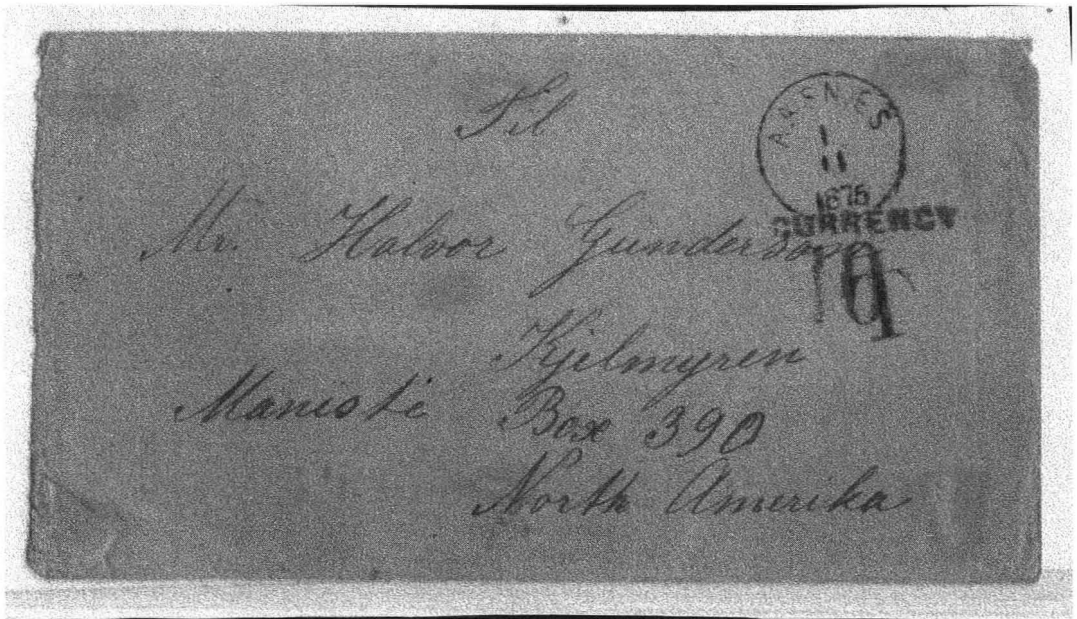 Til
AAENÆS
1
11
1875
CURRENCY
10
Mr. Halvor Gunderson
Kjelmyren
Manistè Box 390
North Amerika